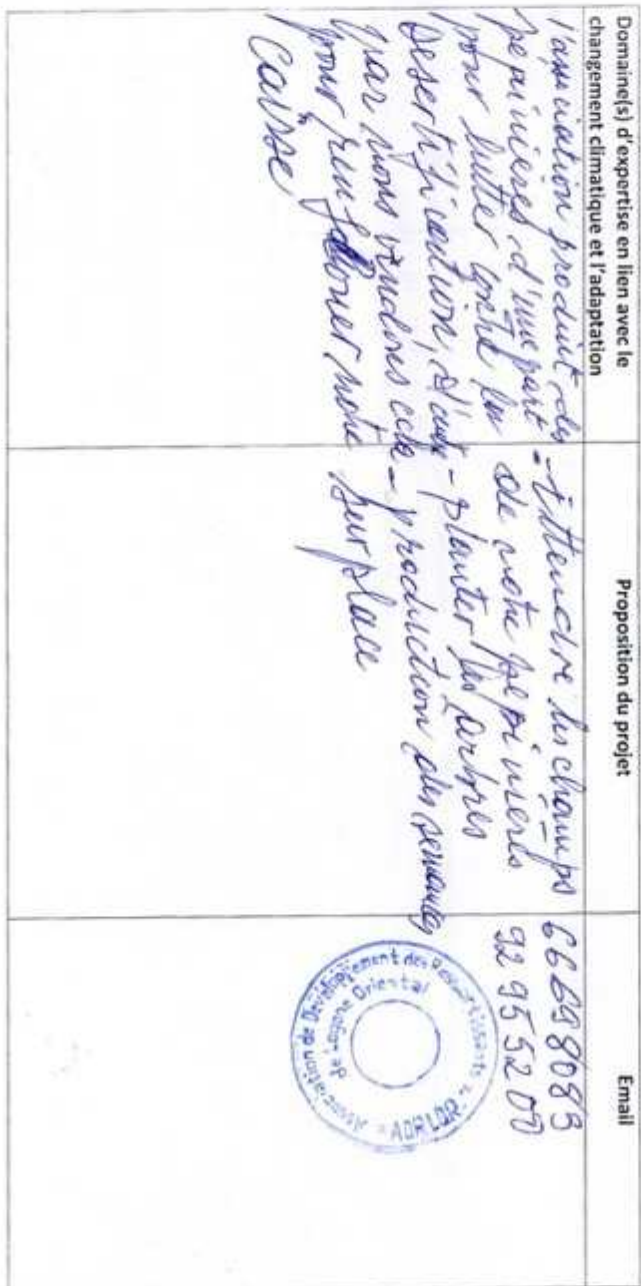 Domaine(s) d'expertise en lien avec le
changement climatique et l'adaptation
l'association produit des
pepinieres d'une part
pour lutter contre la
desertification, d'autre
par nous vendons cela
pour renforcer notre
Caisse
Proposition du projet
- Ettendre les champs
de notre pepinieres
- planter les arbres
- production des semences
sur place
Email
66698089
92955200
Association de Développement des Ressortissants
de Logone Oriental
ADRLOR